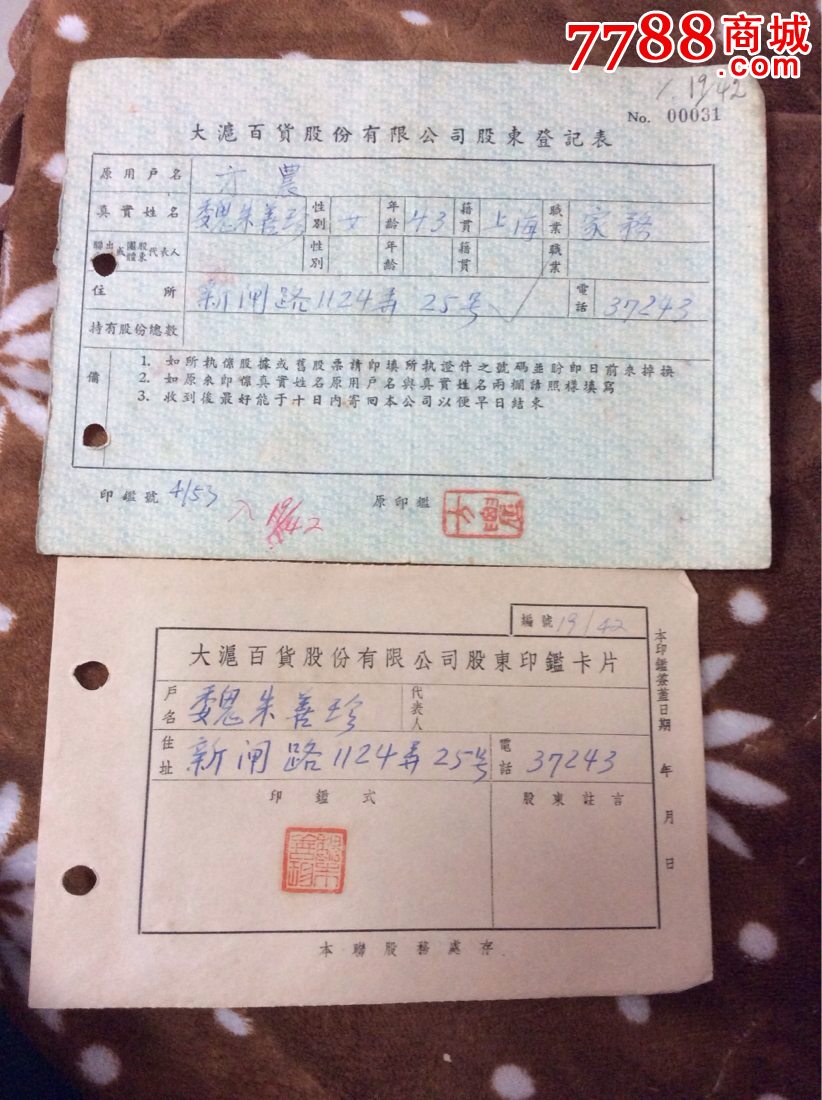 7788商城
.com
1942
No. 00031
大滬百貨股份有限公司股東登記表
原用戶名 方農
真實姓名 魏朱善珍 性別 女 年齡 43 籍貫 上海 職業 家務
聯出或團體股東代表人 性別 年齡 籍貫 職業
住所 新闸路1124弄25号 電話 37243
持有股份總數
備
1. 如所執係股據或舊股票請即填所執證件之號碼並盼即日前來掉換
2. 如原來即係真實姓名原用戶名與真實姓名兩欄請照樣填寫
3. 收到後最好能于十日內寄回本公司以便早日結束
印鑑號 4153
原印鑑
編號 19142
大滬百貨股份有限公司股東印鑑卡片
戶名 魏朱善珍 代表人
住址 新闸路1124弄25号 電話 37243
印鑑式 股東註言
本聯股務處存
本印鑑簽蓋日期 年 月 日